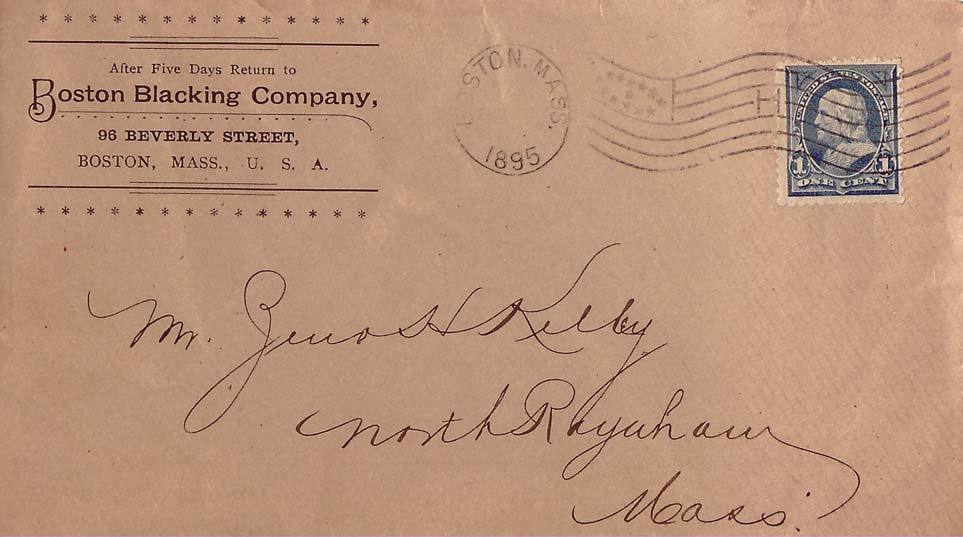 * * * * * * * * * * * * * *
After Five Days Return to
Boston Blacking Company,
96 BEVERLY STREET,
BOSTON, MASS., U. S. A.
* * * * * * * * * * * * * *
STON. MASS.
1895
H
UNITED STATES POSTAGE
1 1
ONE CENT
Mr. Zeno H Kelly
North Raynham
Mass.